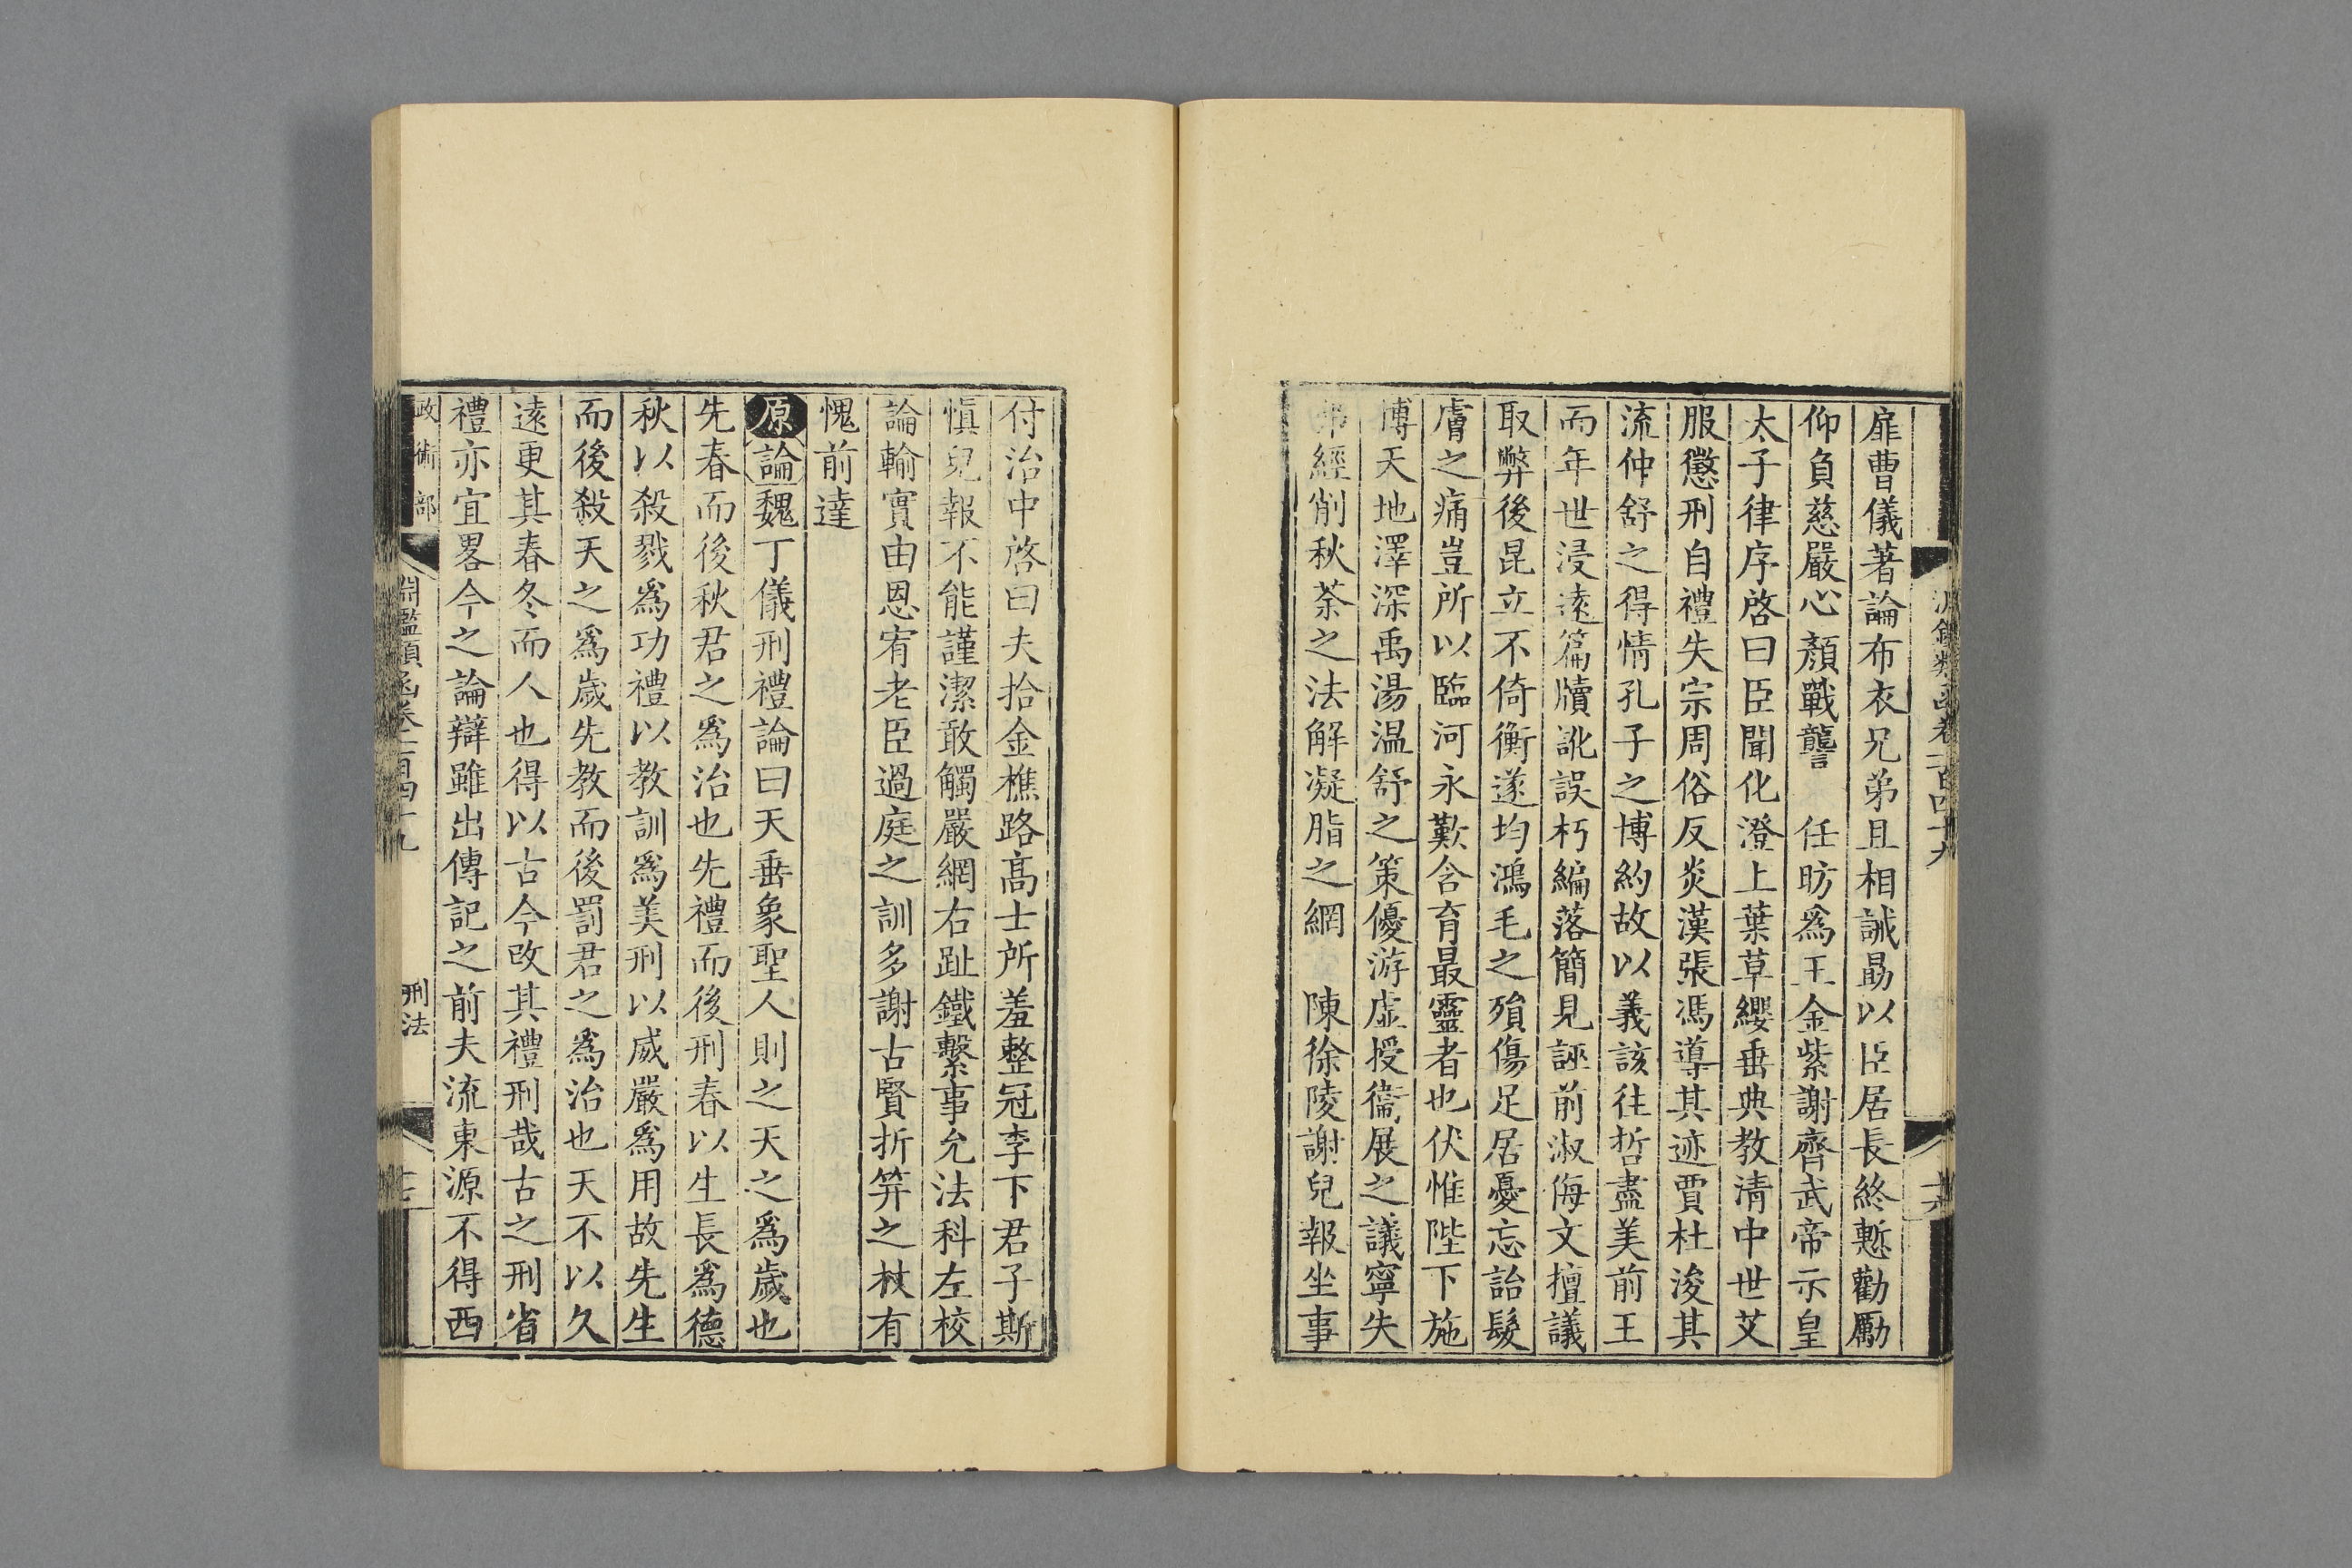 扉曹儀著論布衣兄弟且相誡勗以臣居長終慙勸勵
仰負慈嚴心顏戰讋　任昉爲王金紫謝齊武帝示皇
太子律序啓曰臣聞化澄上葉草纓垂典教清中世艾
服懲刑自禮失宗周俗反炎漢張馮導其迹賈杜浚其
流仲舒之得情孔子之博約故以義該往哲盡美前王
而年世浸遠篇牘訛誤朽編落簡見誣前淑侮文擅議
取弊後昆立不倚衡遂均鴻毛之殞傷足居憂忘詒髮
膚之痛豈所以臨河永歎含育最靈者也伏惟陛下施
博天地澤深禹湯温舒之策優游虛授衞展之議寧失
弗經削秋荼之法解凝脂之網　陳徐陵謝兒報坐事
付治中啓曰夫拾金樵路高士所羞整冠李下君子斯
愼兒報不能謹潔敢觸嚴網右趾鐵繫事允法科左校
論輸實由恩宥老臣過庭之訓多謝古賢折笄之杖有
愧前達
原論魏丁儀刑禮論曰天垂象聖人則之天之爲歲也
先春而後秋君之爲治也先禮而後刑春以生長爲德
秋以殺戮爲功禮以教訓爲美刑以威嚴爲用故先生
而後殺天之爲歲先教而後罰君之爲治也天不以久
遠更其春冬而人也得以古今改其禮刑哉古之刑省
禮亦宜畧今之論辯雖出傳記之前夫流東源不得西
政術部　淵鑑類函卷一百四十九　刑法